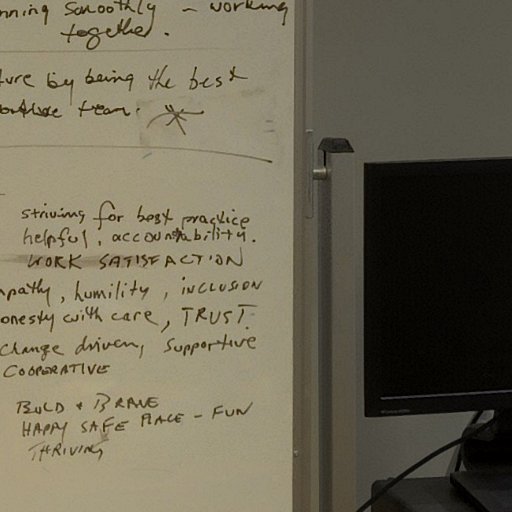 nning smoothly - working
together.
ture by being the best
team.
striving for best practice
helpful, accountability.
WORK SATISFACTION
mpathy, humility, INCLUSION
onesty with care, TRUST.
change driven, supportive
COOPERATIVE
BOLD + BRAVE
HAPPY SAFE PLACE - FUN
THRIVING